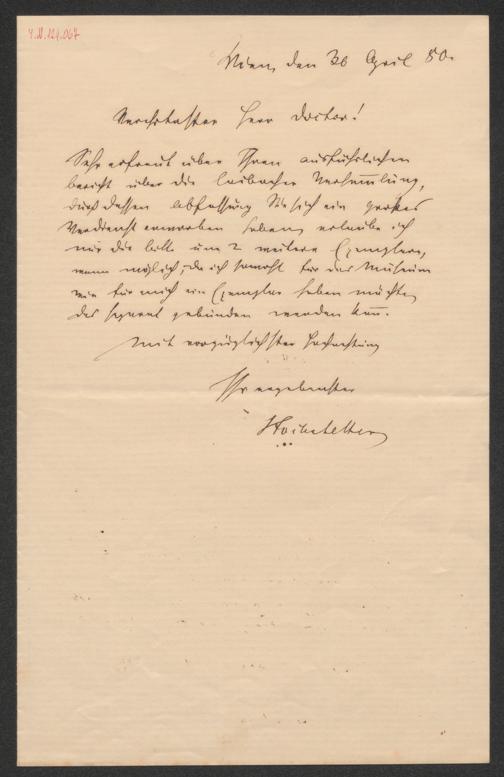 I.N. 121.067
Wien, den 30 April 80.
Verehrtester Herr Doctor!
Sehr erfreut über Ihren ausführlichen
Bericht über die Laibacher Versammlung,
durch dessen Abfassung Sie sich ein großes
Verdienst erworben haben, erlaube ich
mir die Bitte um 2 weitere Exemplare,
wenn möglich, da ich sowohl für das Museum
wie für mich ein Exemplar haben möchte,
das separat gebunden werden kann.
Mit vorzüglichster Hochachtung
Ihr ergebenster
Hochstetter